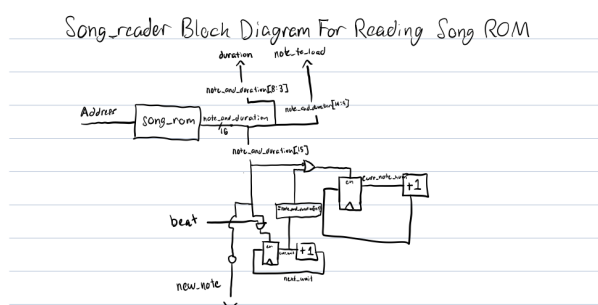 Song_reader Block Diagram For Reading Song ROM
duration note_to_load
note_and_duration[8:3]
Address
song_rom
note_and_duration
16
note_and_duration[15]
en
curr_note_num
+1
beat
en
+1
next_wait
new_note